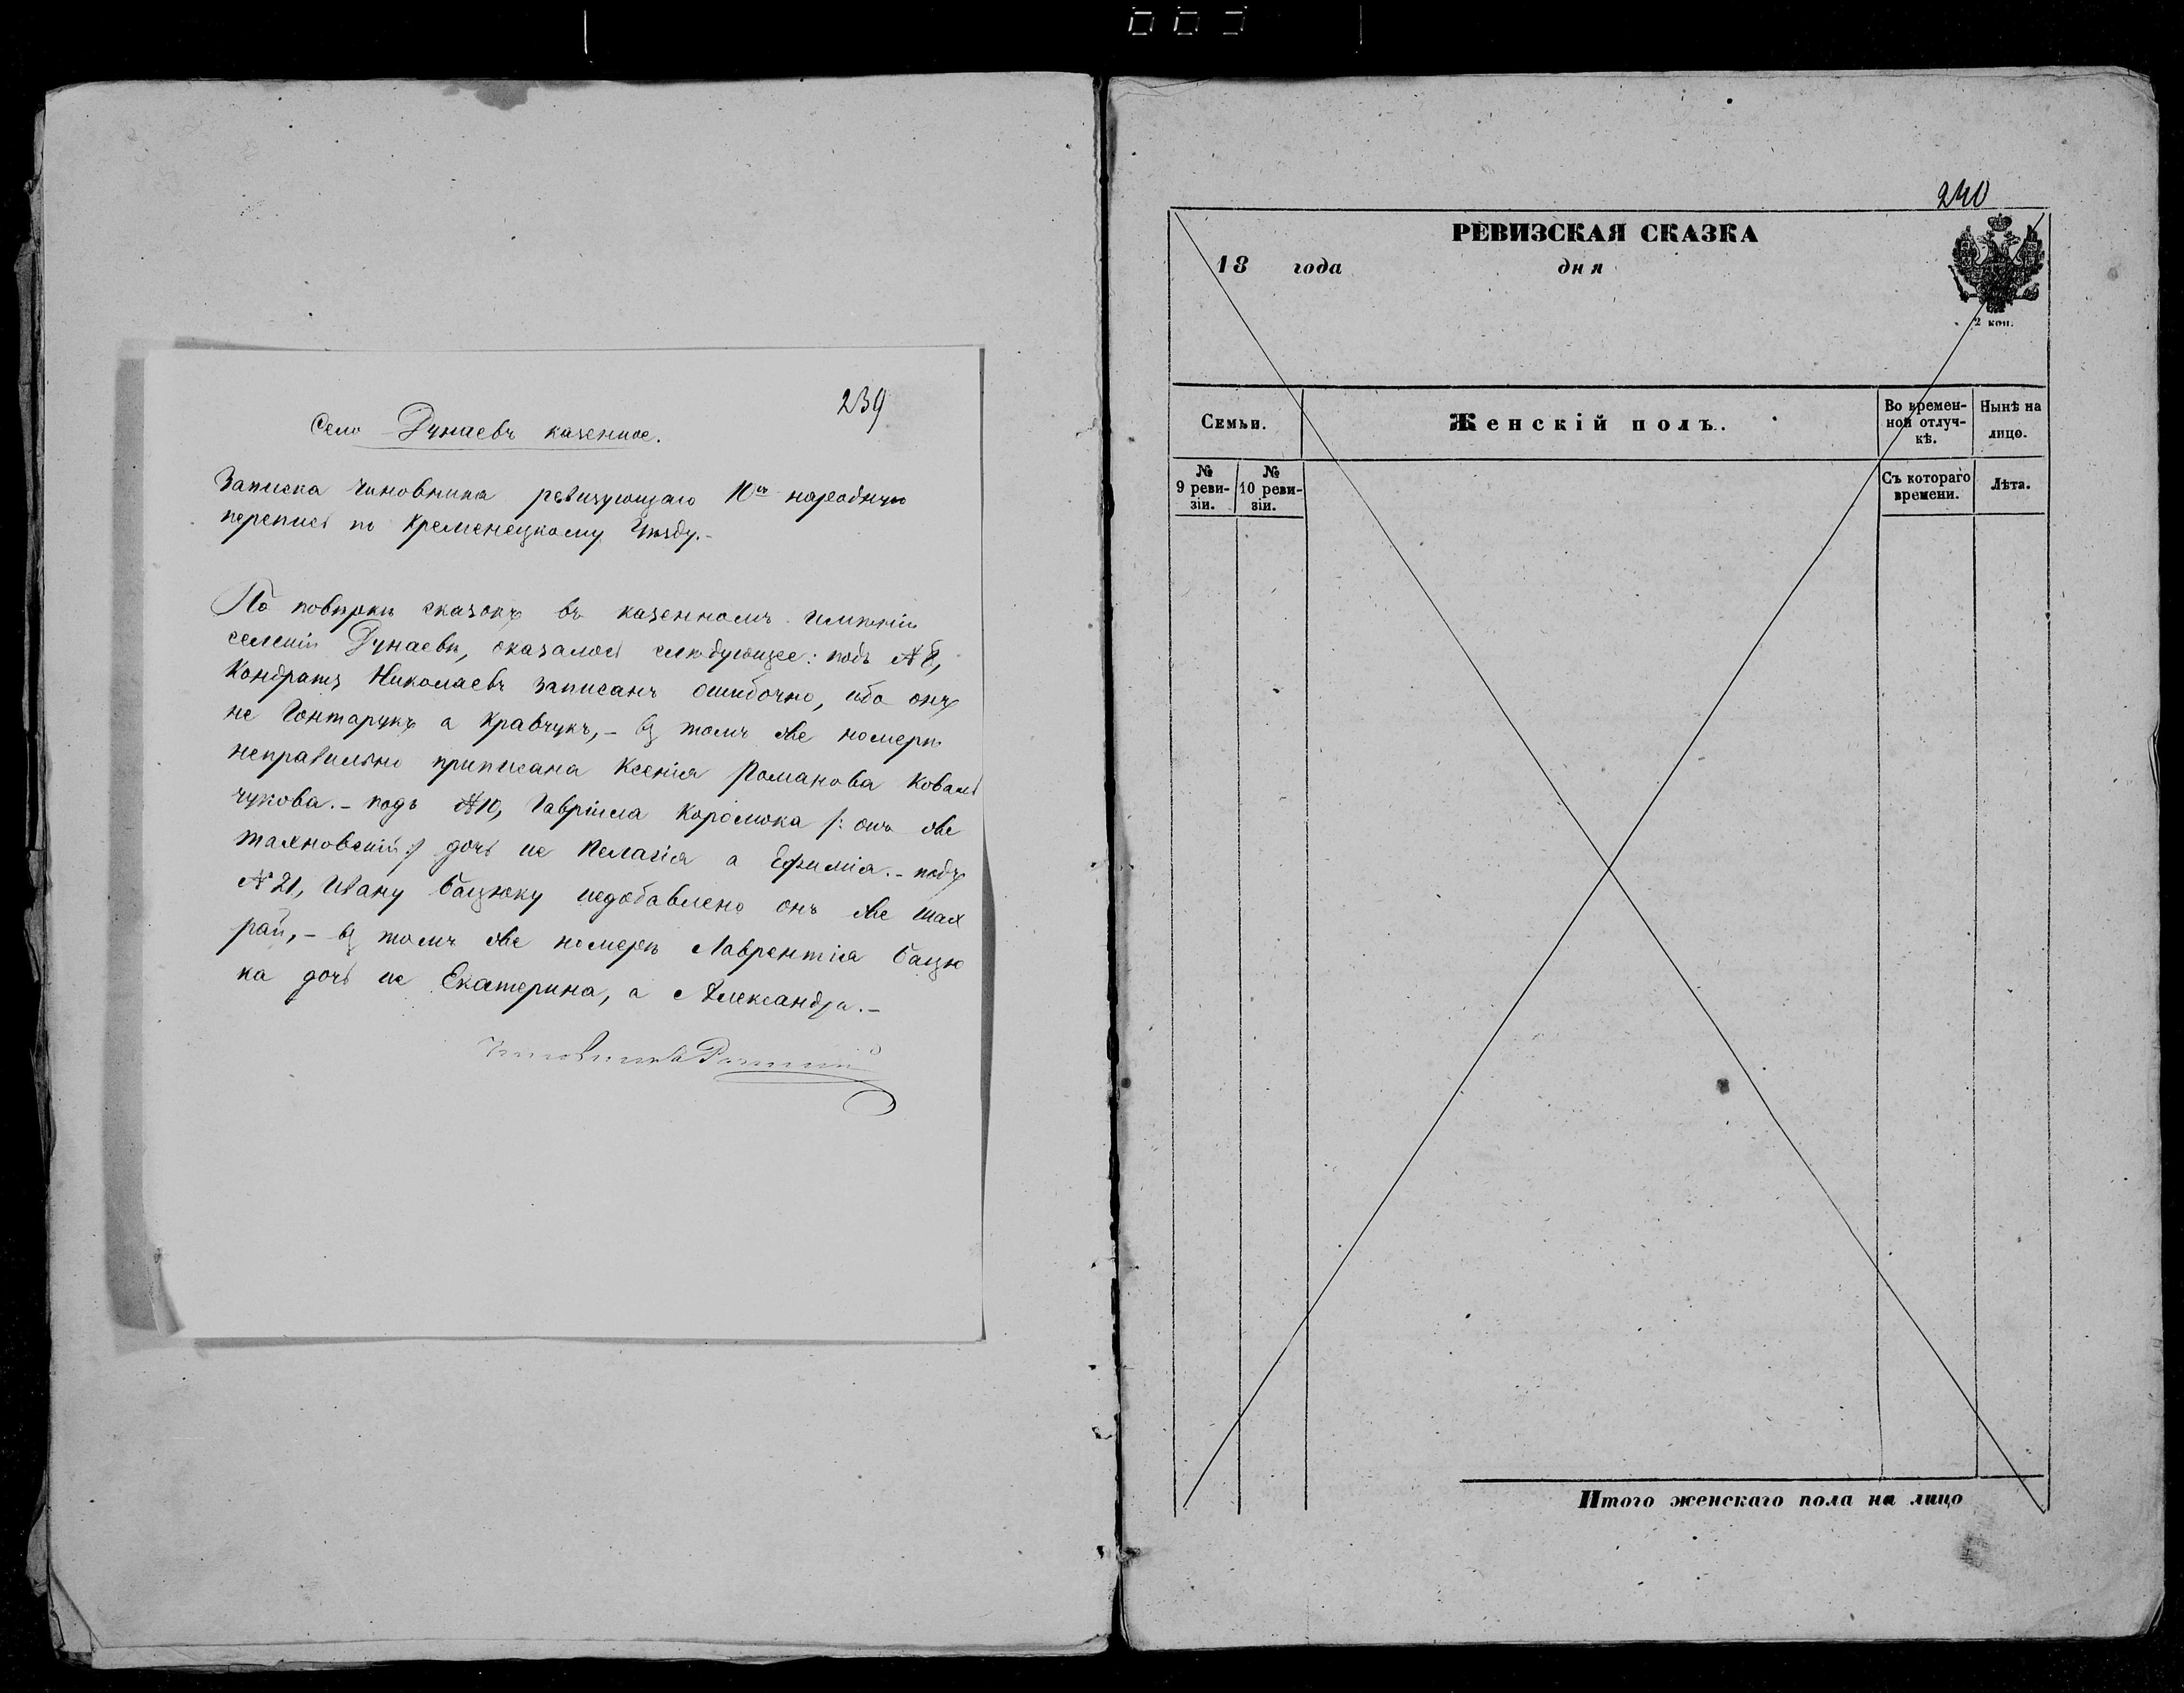 239
Село Дунаевъ казенное.
Записка чиновника ревизующаго 10ю народную
перепись по Кременецкому Уѣзду.-
По повѣрки сказокъ въ казенномъ имѣніи
селеніи Дунаевѣ, оказалось слѣдующее: подъ №8,
Кондратъ Николаевъ записанъ ошибочно, ибо онъ
не Гонтарукъ а Кравчукъ,- въ томъ же номерѣ
неправильно приписана Ксенія Романова Коваль
чукова.- подъ №10, Гавріила Королюка /: онъ же
Маяновскій :/ дочь не Пелагія а Ефимія.- подъ
№21, Ивану Бацюку недобавлено онъ же Шах
рай,- въ томъ же номерѣ Лаврентія Бацю
ка дочь не Екатерина, а Александра.-
Чиновникъ
240
РЕВИЗСКАЯ СКАЗКА
18 года дня
2 коп.
Семьи.
Женскій полъ.
Во времен-
ной отлуч-
кѣ.
Нынѣ на
лицо.
№
9 реви-
зіи.
№
10 реви-
зіи.
Съ котораго
времени.
Лѣта.
Итого женскаго пола на лицо